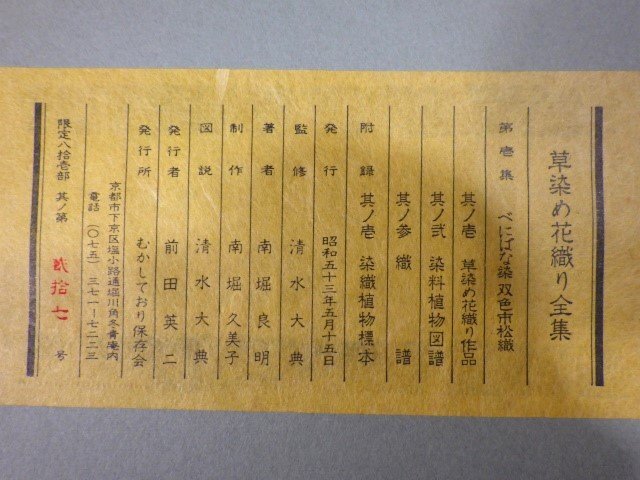 草染め花織り全集
第壱集 べにばな染 双色市松織
其ノ壱 草染め花織り作品
其ノ弐 染料植物図譜
其ノ参 織譜
附録 其ノ壱 染織植物標本
発行 昭和五十三年五月十五日
監修 清水大典
著者 南堀良明
制作 南堀久美子
図説 清水大典
発行者 前田英二
発行所 むかしており保存会
京都市下京区塩小路通堀川角冬青庵内
電話 (〇七五) 三七一-七二二三
限定八拾壱部 其ノ第 弐拾七 号